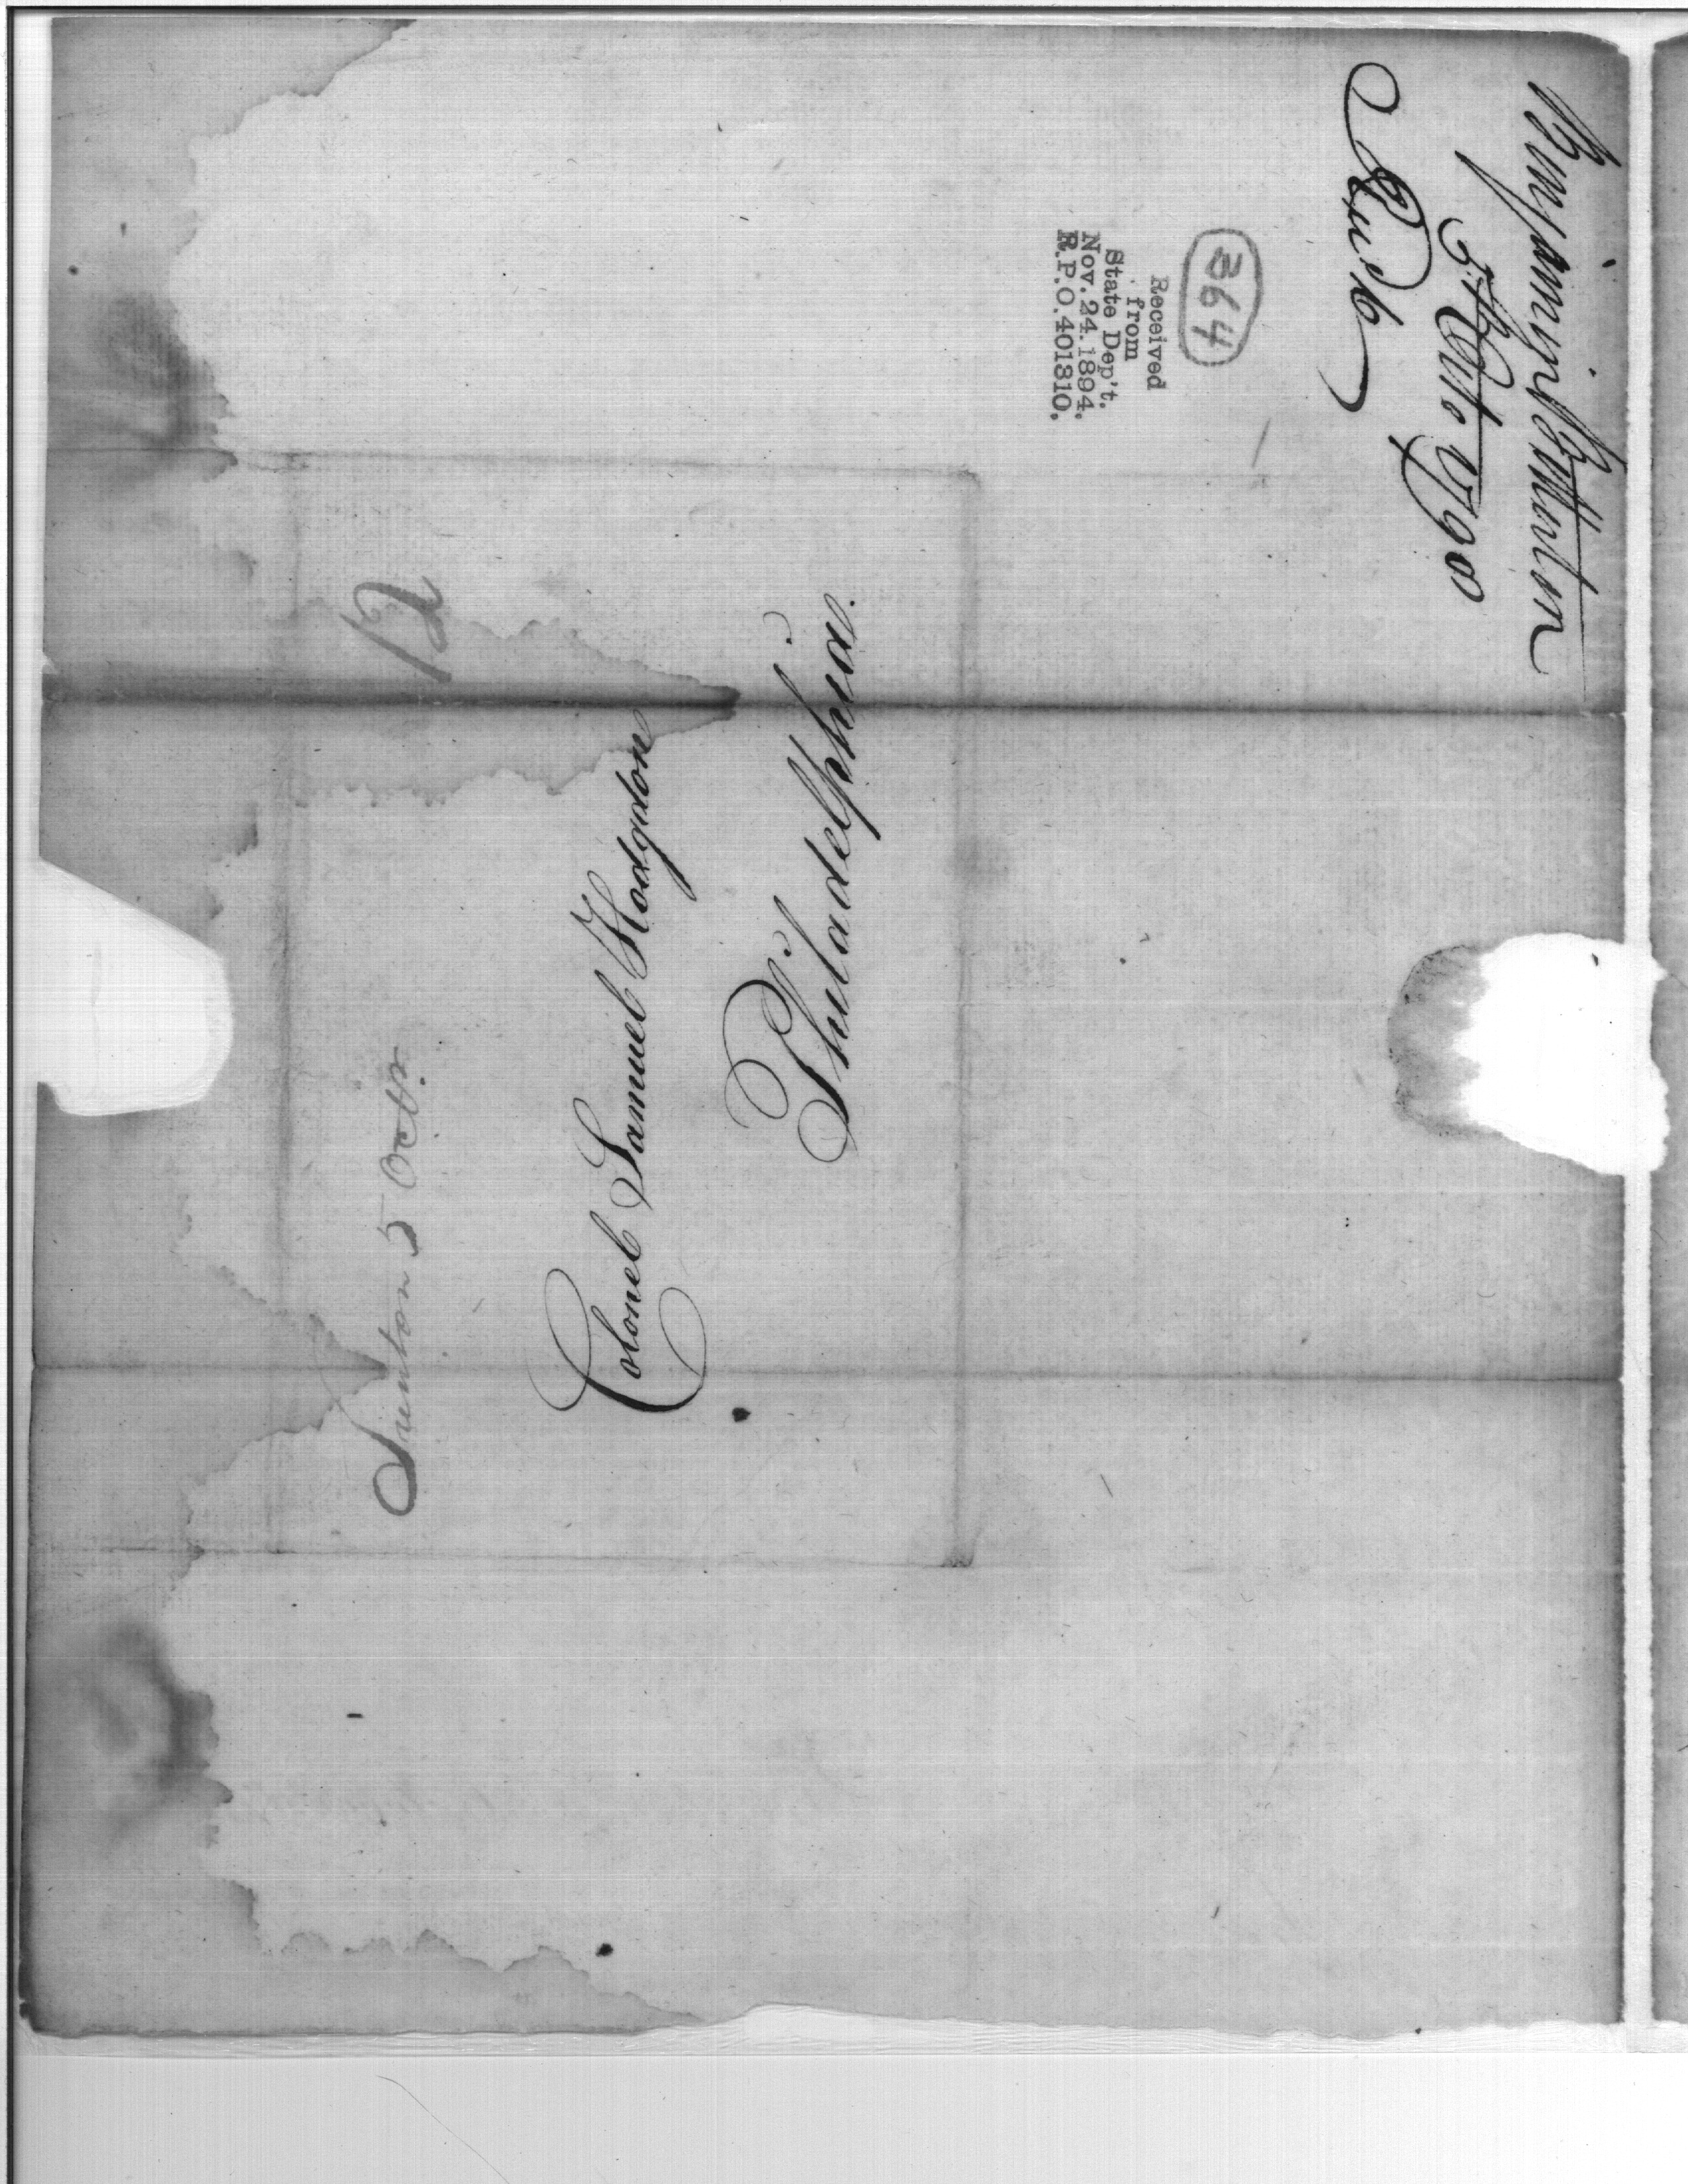 Benjamin Bettinton
5th Octo 1790
Recd
364
Received
from
State Dep't.
Nov. 24. 1894.
R.P.O. 401310.
Trenton 5 Octr.
12
Colonel Samuel Hodgdon
Philadelphia.